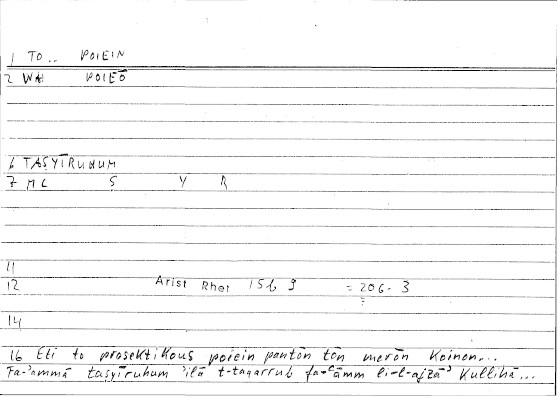 1 TO.. POIEIN
2 WH POIEŌ
6 TAṢYĪRUHUM
7 ML S Y R
11
12 Arist Rhet 15b 9 = 206. 3
14
16 Eti to prosektikous poiein pantōn tōn merōn koinon...
Fa-'ammā taṣyīruhum 'ilā t-taqarrub fa-'āmm li-l-ajzā' kullihā...